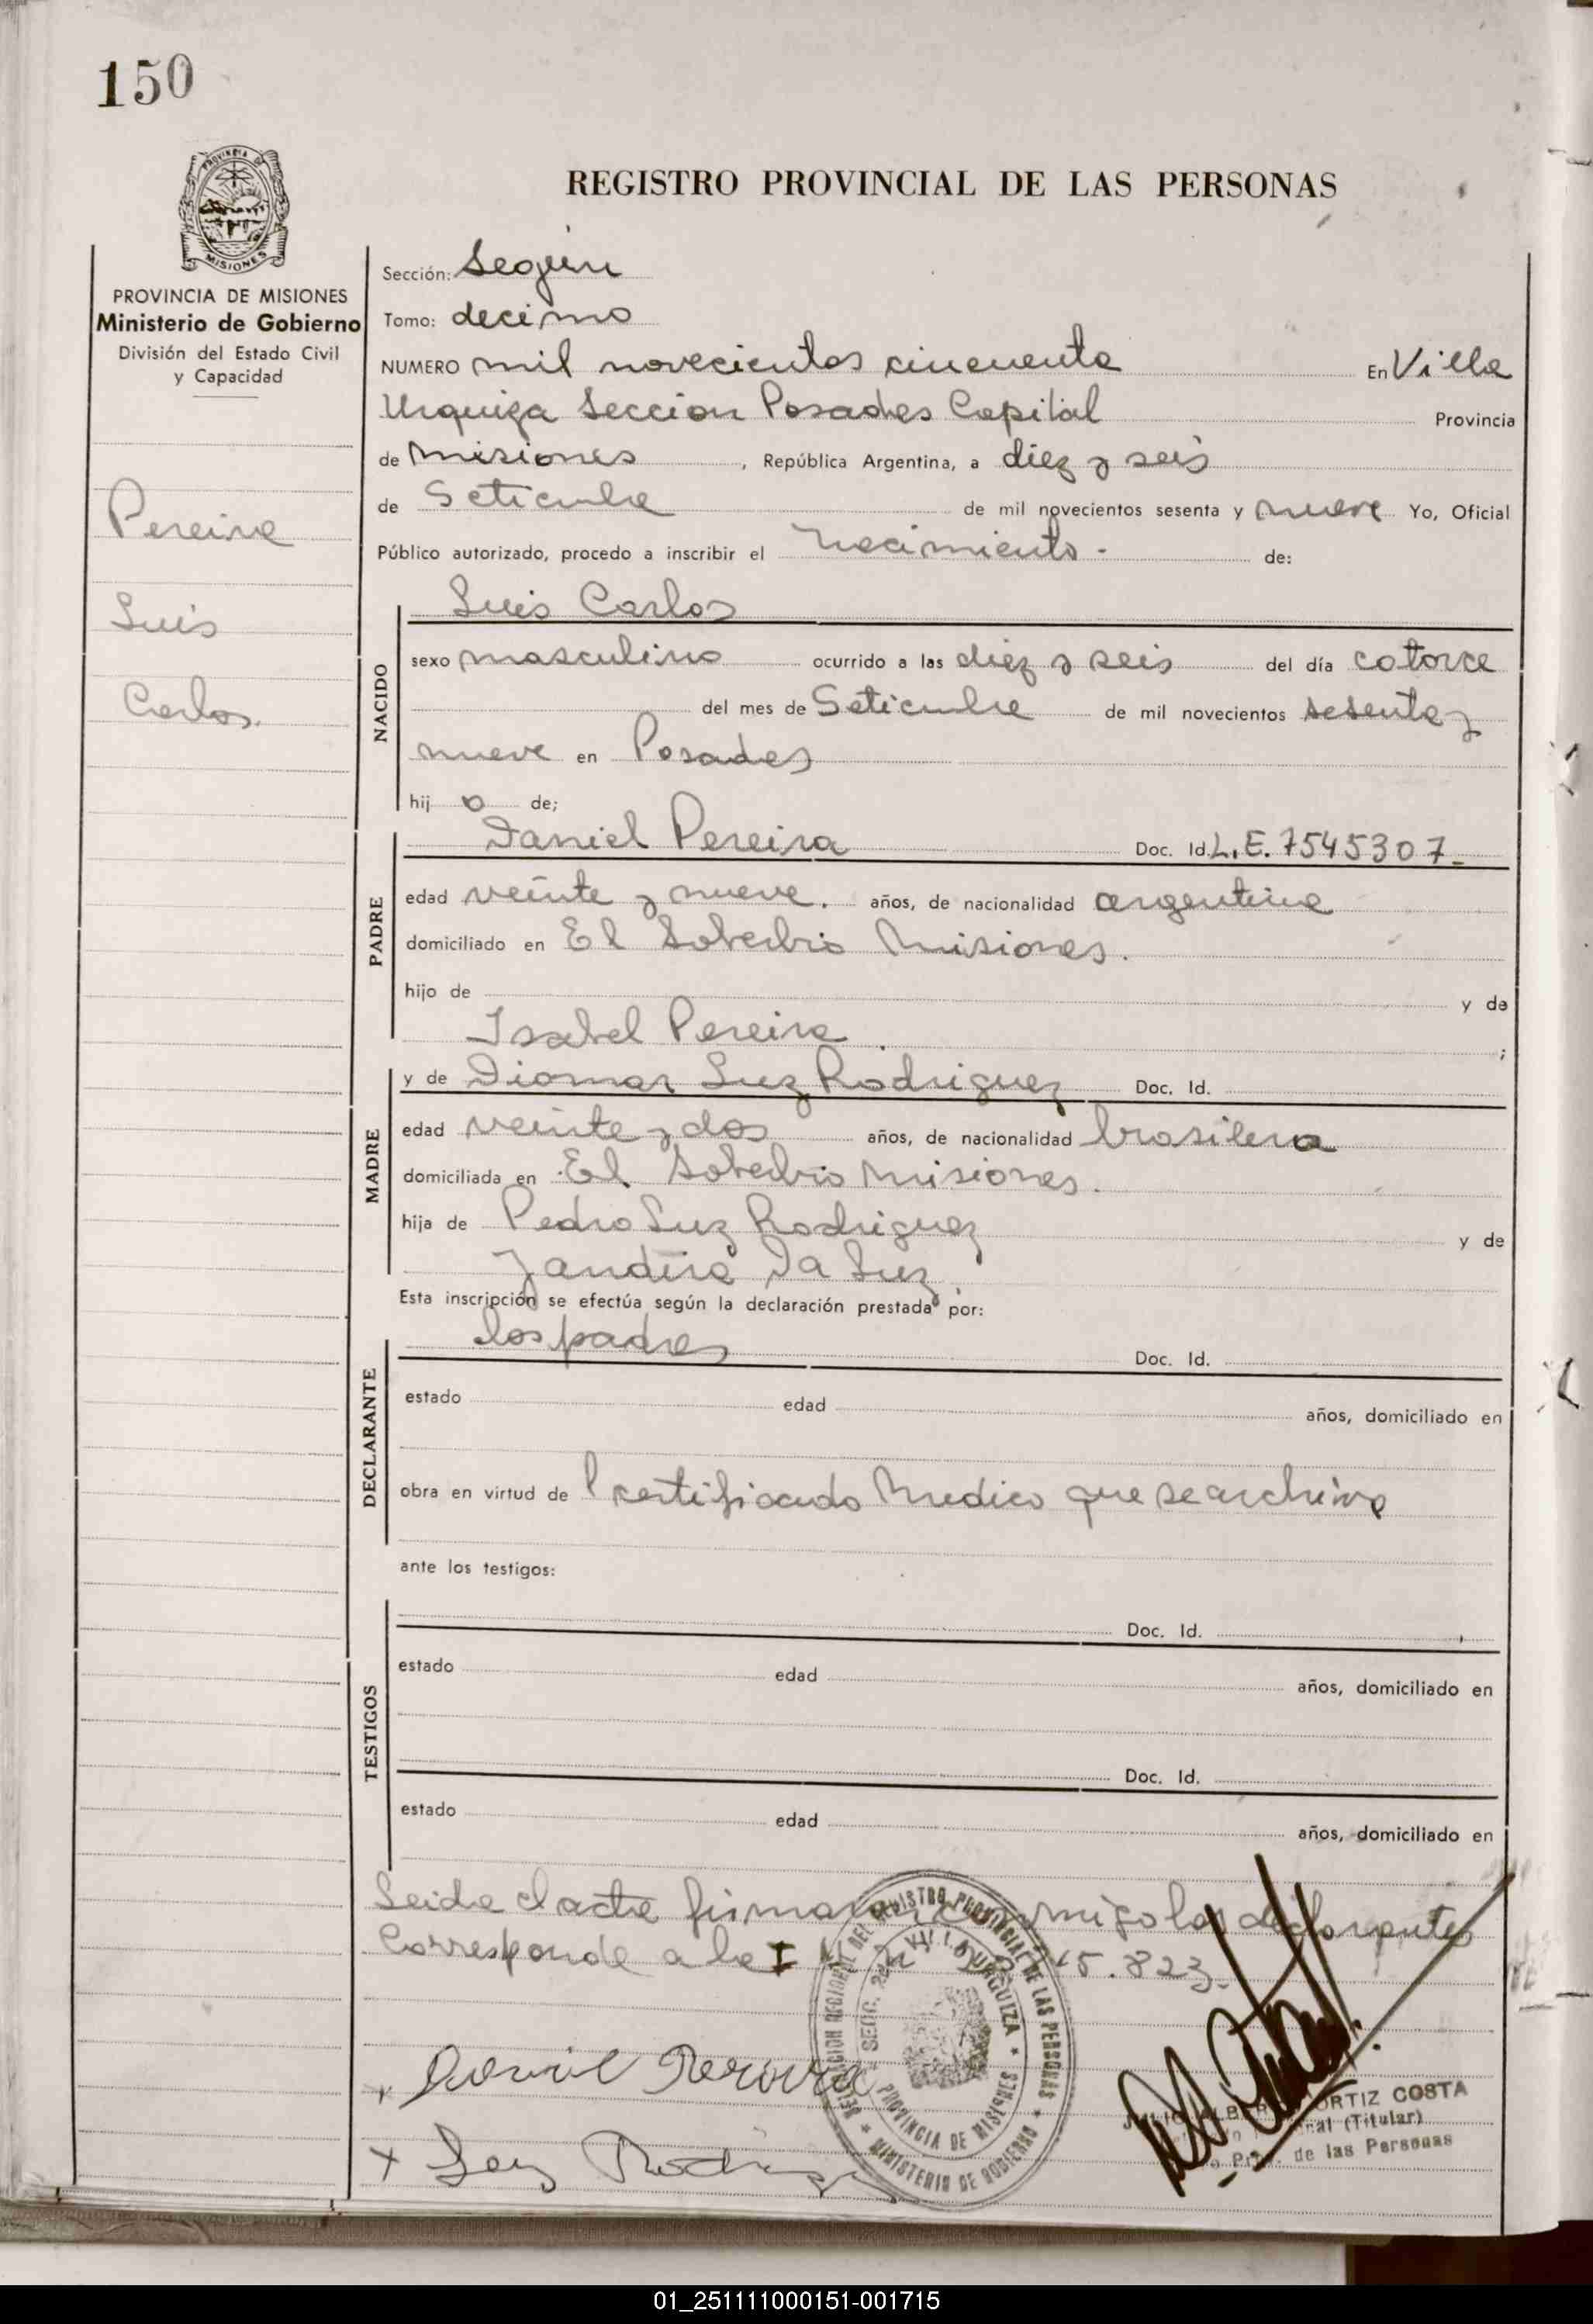 150
PROVINCIA DE MISIONES
REGISTRO PROVINCIAL DE LAS PERSONAS
PROVINCIA DE MISIONES
Ministerio de Gobierno
División del Estado Civil
y Capacidad
Pereira
Luis
Carlos.
Sección:
Tomo: decimo
NUMERO mil novecientos cincuenta En Villa
Urquiza Seccion Posadas Capital Provincia
de Misiones, República Argentina, a diez y seis
de Setiembre de mil novecientos sesenta y nueve Yo, Oficial
Público autorizado, procedo a inscribir el Nacimiento - de:
Luis Carlos
NACIDO
sexo masculino ocurrido a las diez y seis del día catorce
del mes de Setiembre de mil novecientos sesenta y
nueve en Posadas
hij o de;
Daniel Pereira Doc. Id. L.E. 7545307.
PADRE
edad veinte y nueve. años, de nacionalidad argentina
domiciliado en El Soberbio Misiones.
hijo de y de
Isabel Pereira. ;
y de Diomar Luz Rodriguez Doc. Id.
MADRE
edad veinte y dos años, de nacionalidad brasilera
domiciliada en El Soberbio Misiones.
hija de Pedro Luz Rodriguez y de
Jandira Da Luz.
Esta inscripción se efectúa según la declaración prestada por:
los padres Doc. Id.
DECLARANTE
estado edad años, domiciliado en
obra en virtud de certificado Medico que se archiva
ante los testigos:
Doc. Id.
TESTIGOS
estado edad años, domiciliado en
Doc. Id.
estado edad años, domiciliado en
Leida el acta firman conmigo los declarantes
Corresponde a la 15.823.
DELEGACION REGIONAL DEL REGISTRO PROVINCIAL DE LAS PERSONAS
MINISTERIO DE GOBIERNO
SECC. 2da. VILLA URQUIZA
PROVINCIA DE MISIONES
Rodrigu
JULIO ALBERTO ORTIZ COSTA
(Titular)
de las Personas
01_251111000151-001715